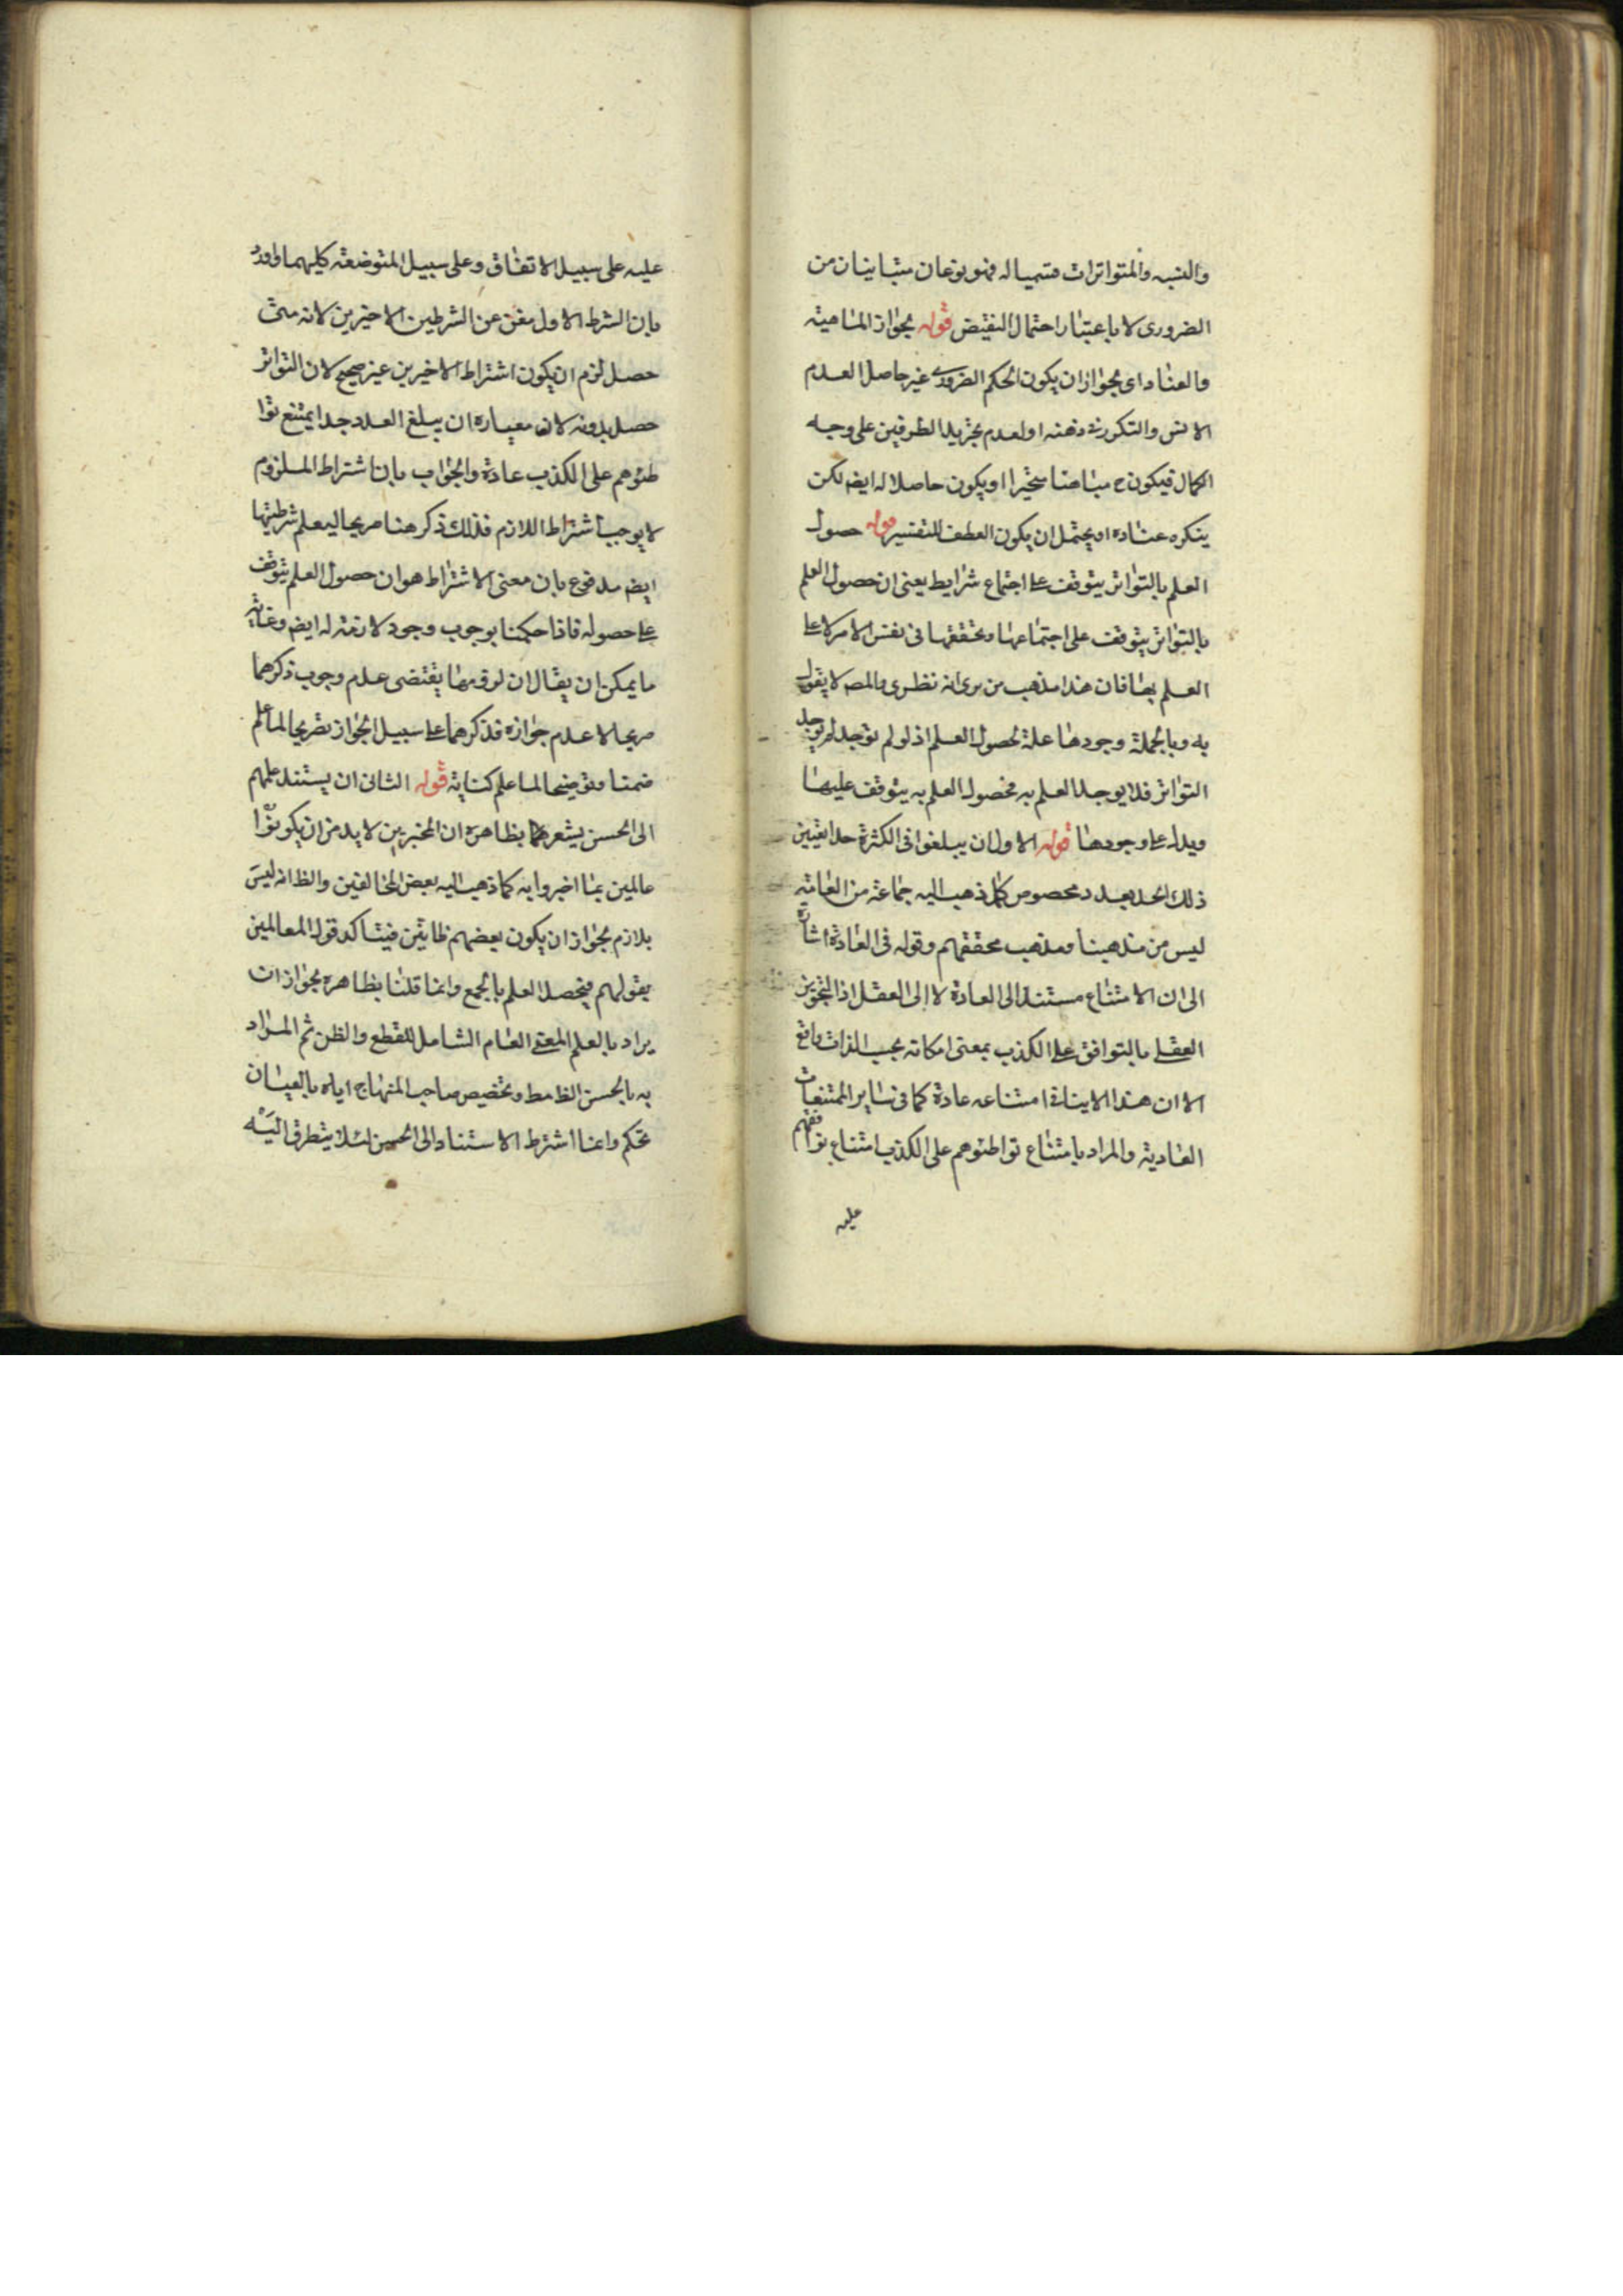 والنسبه والمتواترات قسيما له فهو نوعان متباينان من
الضروري لا باعتبار احتمال النقيض قوله بجواز المباهتة
والعناد اي بجواز ان يكون الحكم الضروري غير حاصل العدم
الانس والتكور في ذهنه او لعدم تجريد الطرفين على وجه
الكمال فيكون ح مباهتا متحيرا او يكون حاصلا له ايضا لكن
ينكره عنادا ويحتمل ان يكون العطف للتفسير قوله حصول
العلم بالتواتر يتوقف على اجتماع شرايط يعني ان حصول العلم
بالتواتر يتوقف على اجتماعها وتحققها في نفس الامر لا على
العلم بها فان هذا مذهب من يرى انه نظري والمص لا يقول
به وبالجملة وجودها علة لحصول العلم اذ لو لم توجد لم يوجد
التواتر فلا يوجد العلم به فحصول العلم به يتوقف عليها
ويدل على وجودها قوله الاول ان يبلغوا في الكثرة حدا تعيين
ذلك الحد بعدد مخصوص كما ذهب اليه جماعة من العامة
ليس من مذهبنا ومذهب محققهم وقوله في العادة اشارة
الى ان الامتناع مستند الى العادة لا الى العقل اذ التجويز
العقلي بالتوافق على الكذب بمعنى امكانه بحسب الذات واقع
الا ان هذا لا ينافي امتناعه عادة كما في ساير الممتنعات
العادية والمراد بامتناع تواطئوهم على الكذب امتناع توافقهم
عليه
عليه على سبيل الاتفاق وعلى سبيل المتوضعة كليهما واورد
بان الشرط الاول مغن عن الشرطين الاخيرين لانه متى
حصل لزم ان يكون اشتراط الاخيرين غير صحيح لان التواتر
حصل بدونه لان معياره ان يبلغ العدد حدا يمتنع توا
طئوهم على الكذب عادة والجواب بان اشتراط الملزوم
لا يوجب اشتراط اللازم فلذلك ذكر هنا صريحا ليعلم شرطيتها
ايضا مدفوع بان معنى الاشتراط هو ان حصول العلم يتوقف
على حصوله فاذا حكمنا بوجوب وجود لازمه له ايضا وغاية
ما يمكن ان يقال ان لزومها يقتضي عدم وجوب ذكرهما
صريحا لا عدم جوازه فذكرهما على سبيل الجواز تصريحا لما علم
ضمنا وتوضيحا لما علم كناية قوله الثاني ان يستند علمهم
الى الحسن يشعر بظاهره ان المخبرين لا بد من ان يكونوا
عالمين بما اخبروا به كما ذهب اليه بعض المخالفين والظ انه ليس
بلازم بجواز ان يكون بعضهم ظانين فيتاكد قول العالمين
بقولهم فيحصل العلم بالجمع وانما قلنا بظاهره بجواز ان
يراد بالعلم المعنى العام الشامل للقطع والظن ثم المراد
به بالحسن الظ فقط وتخصيص صاحب المنهاج اياه بالعيان
تحكم وانما اشترط الاستناد الى الحسن لئلا يتطرق اليه